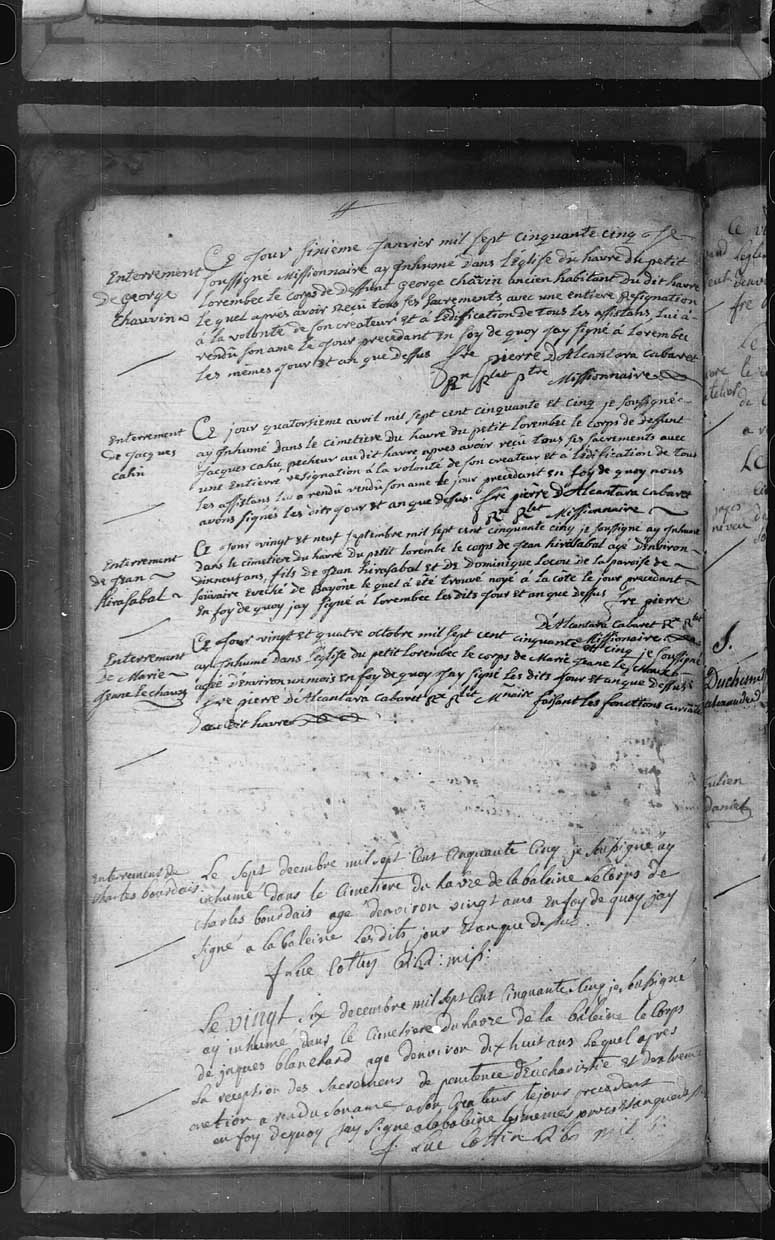 Enterrement
De George
Chauvin
Ce Jour sixieme Janvier mil sept cinquante cinq Je
soussigné Missionnaire ay Inhumé dans l'Eglise du havre du petit
Lorembec le corps de deffunt George chavin ancien habitant du dit havre
Le quel apres avoir reçu tous ses sacrements avec une entiere resignation
à la volonté de son createur et à l'édification de tous les assistans, lui à
rendû son ame le Jour precedant en foy de quoy Jay signé à Lorembec
les mêmes Jour et an que dessus fre pierre d'Alcantara Cabaret
ptre Missionnaire
Enterrement
De Jacques
cahu
Ce jour quatorsieme avril mil sept cent cinquante et cinq je soussigné
ay Inhumé dans le cimetiere du havre du petit lorembec le corps de deffunt
Jacques cahu, pecheur au dit havre apres avoir reçu tous ses sacrements avec
une Entiere resignation à la volonté de son createur et à l'édification de tous
les assistans lui a rendû rendû son ame le jour precedant en foy de quoy nous
avons signés les dits Jour et an que dessus. fre pierre D'Alcantara Cabaret
Missionnaire
Enterrement
de Jean
hirasabal
Ce Jour vingt et neuf septembre mil sept cent cinquante cinq je soussigné ay Inhumé
dans le cimetiere du havre du petit lorembe le corps de Jean hirasabal agé d'Environ
dixneuf ans, fils de Jean hirasabal et de Dominique Locou de la paroise de
Eveché de Bayône le quel a été trouvé noyé a la côte le jour precedant
En foy de quoy jay signé à lorembec les dits Jour et an que dessus fre pierre
d'Alcantara Cabaret
Missionaire
Enterrement
de Marie
Jeane le chaux
Ce Jour vingt et quatre octobre mil sept cent cinquante et cinq je soussigné
ay Inhumé dans l'église du petit Lorembec le corps de Marie Jeane le chaux
agée d'Environ un mois en foy de quoy Jay signé Les dits Jour et an que dessus
fre pierre d'Alcantara Cabaret Mnaire faisant les fonctions curiales
au dit havre
enterrement de
Charles bourdais
Le sept decembre mil sept Cent Cinquante Cinq je soussigné ay
inhumé dans le Cimetiere du havre de la baleine le Corps de
Charles bourdais agé denviron vingt ans en foy de quoy jay
signé a la baleine les dits jour et an que dessus
f. Luc Cottin miss:
Le vingt six decembre mil sept Cent Cinquante Cinq je soussigné
ay inhumé dans le Cimetiere du havre de la baleine le Corps
de jaques blanchard agé denviron dix huit ans lequel apres
la reception des Sacremens de penitence d'Eucharistie et dextreme
onction a rendu son ame a son Createur le jour precedent
en foy de quoy jay signé a la baleine les memes jour et an que dessus
f. Luc Cottin
S.
Duchemin
Julien
Daniel